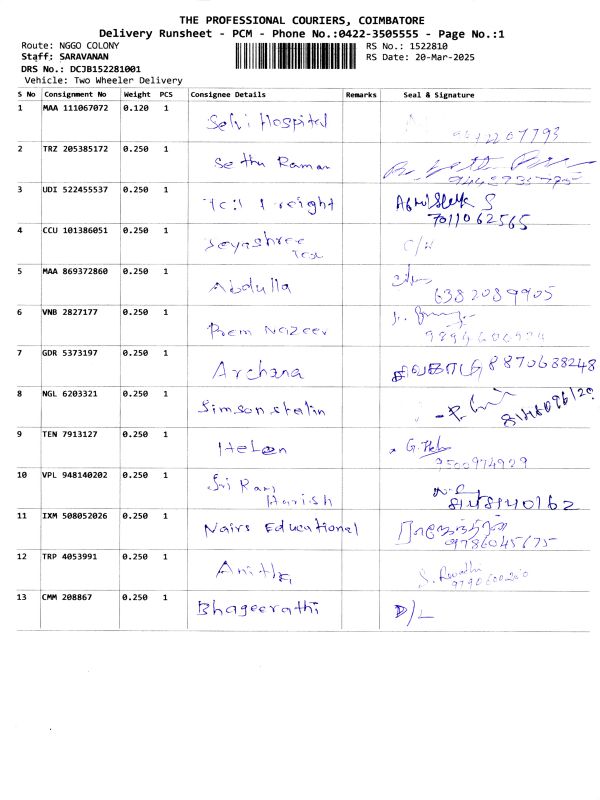 THE PROFESSIONAL COURIERS, COIMBATORE
Delivery Runsheet - PCM - Phone No.:0422-3505555 - Page No.:1
Route: NGGO COLONY
RS No.: 1522810
Staff: SARAVANAN
RS Date: 20-Mar-2025
DRS No.: DCJB152281001
Vehicle: Two Wheeler Delivery
S No Consignment No Weight PCS Consignee Details Remarks Seal & Signature
1 MAA 111067072 0.120 1 Selvi Hospital
2 TRZ 205385172 0.250 1 Sethu Raman
3 UDI 522455537 0.250 1 Abhishek S
7011062565
4 CCU 101386051 0.250 1 Jeyashree
Tex
5 MAA 869372860 0.250 1 Abdulla
6382089905
6 VNB 2827177 0.250 1 Prem Nazeer
7 GDR 5373197 0.250 1 Archana சிவகாமி 8870688248
8 NGL 6203321 0.250 1 Simson stalin
9 TEN 7913127 0.250 1 Helen
9500974929
10 VPL 948140202 0.250 1 Sri Ram
Harish
11 IXM 508052026 0.250 1 Nairs Educational
9786045675
12 TRP 4053991 0.250 1 Anitha
13 CMM 208867 0.250 1 Bhageerathi D/L